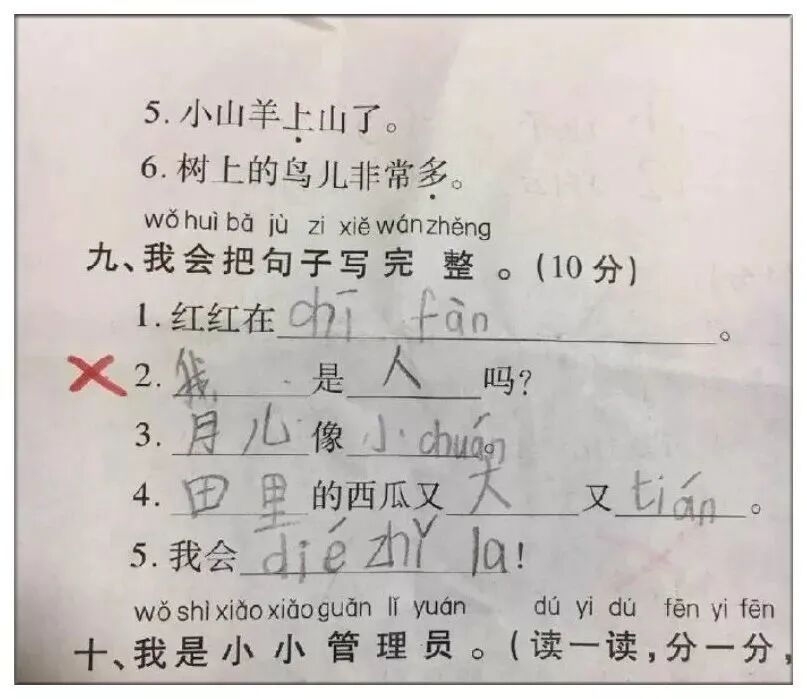 5. 小山羊上山了。
6. 树上的鸟儿非常多。
wǒ huì bǎ jù zi xiě wán zhěng
九、我会把句子写完整。(10分)
1. 红红在chī fàn。
2. 我是人吗?
3. 月儿像小chuán。
4. 田里的西瓜又大又tián。
5. 我会dié zhǐ la!
wǒ shì xiǎo xiǎo guǎn lǐ yuán dú yi dú fēn yi fēn
十、我是小小管理员。(读一读,分一分,